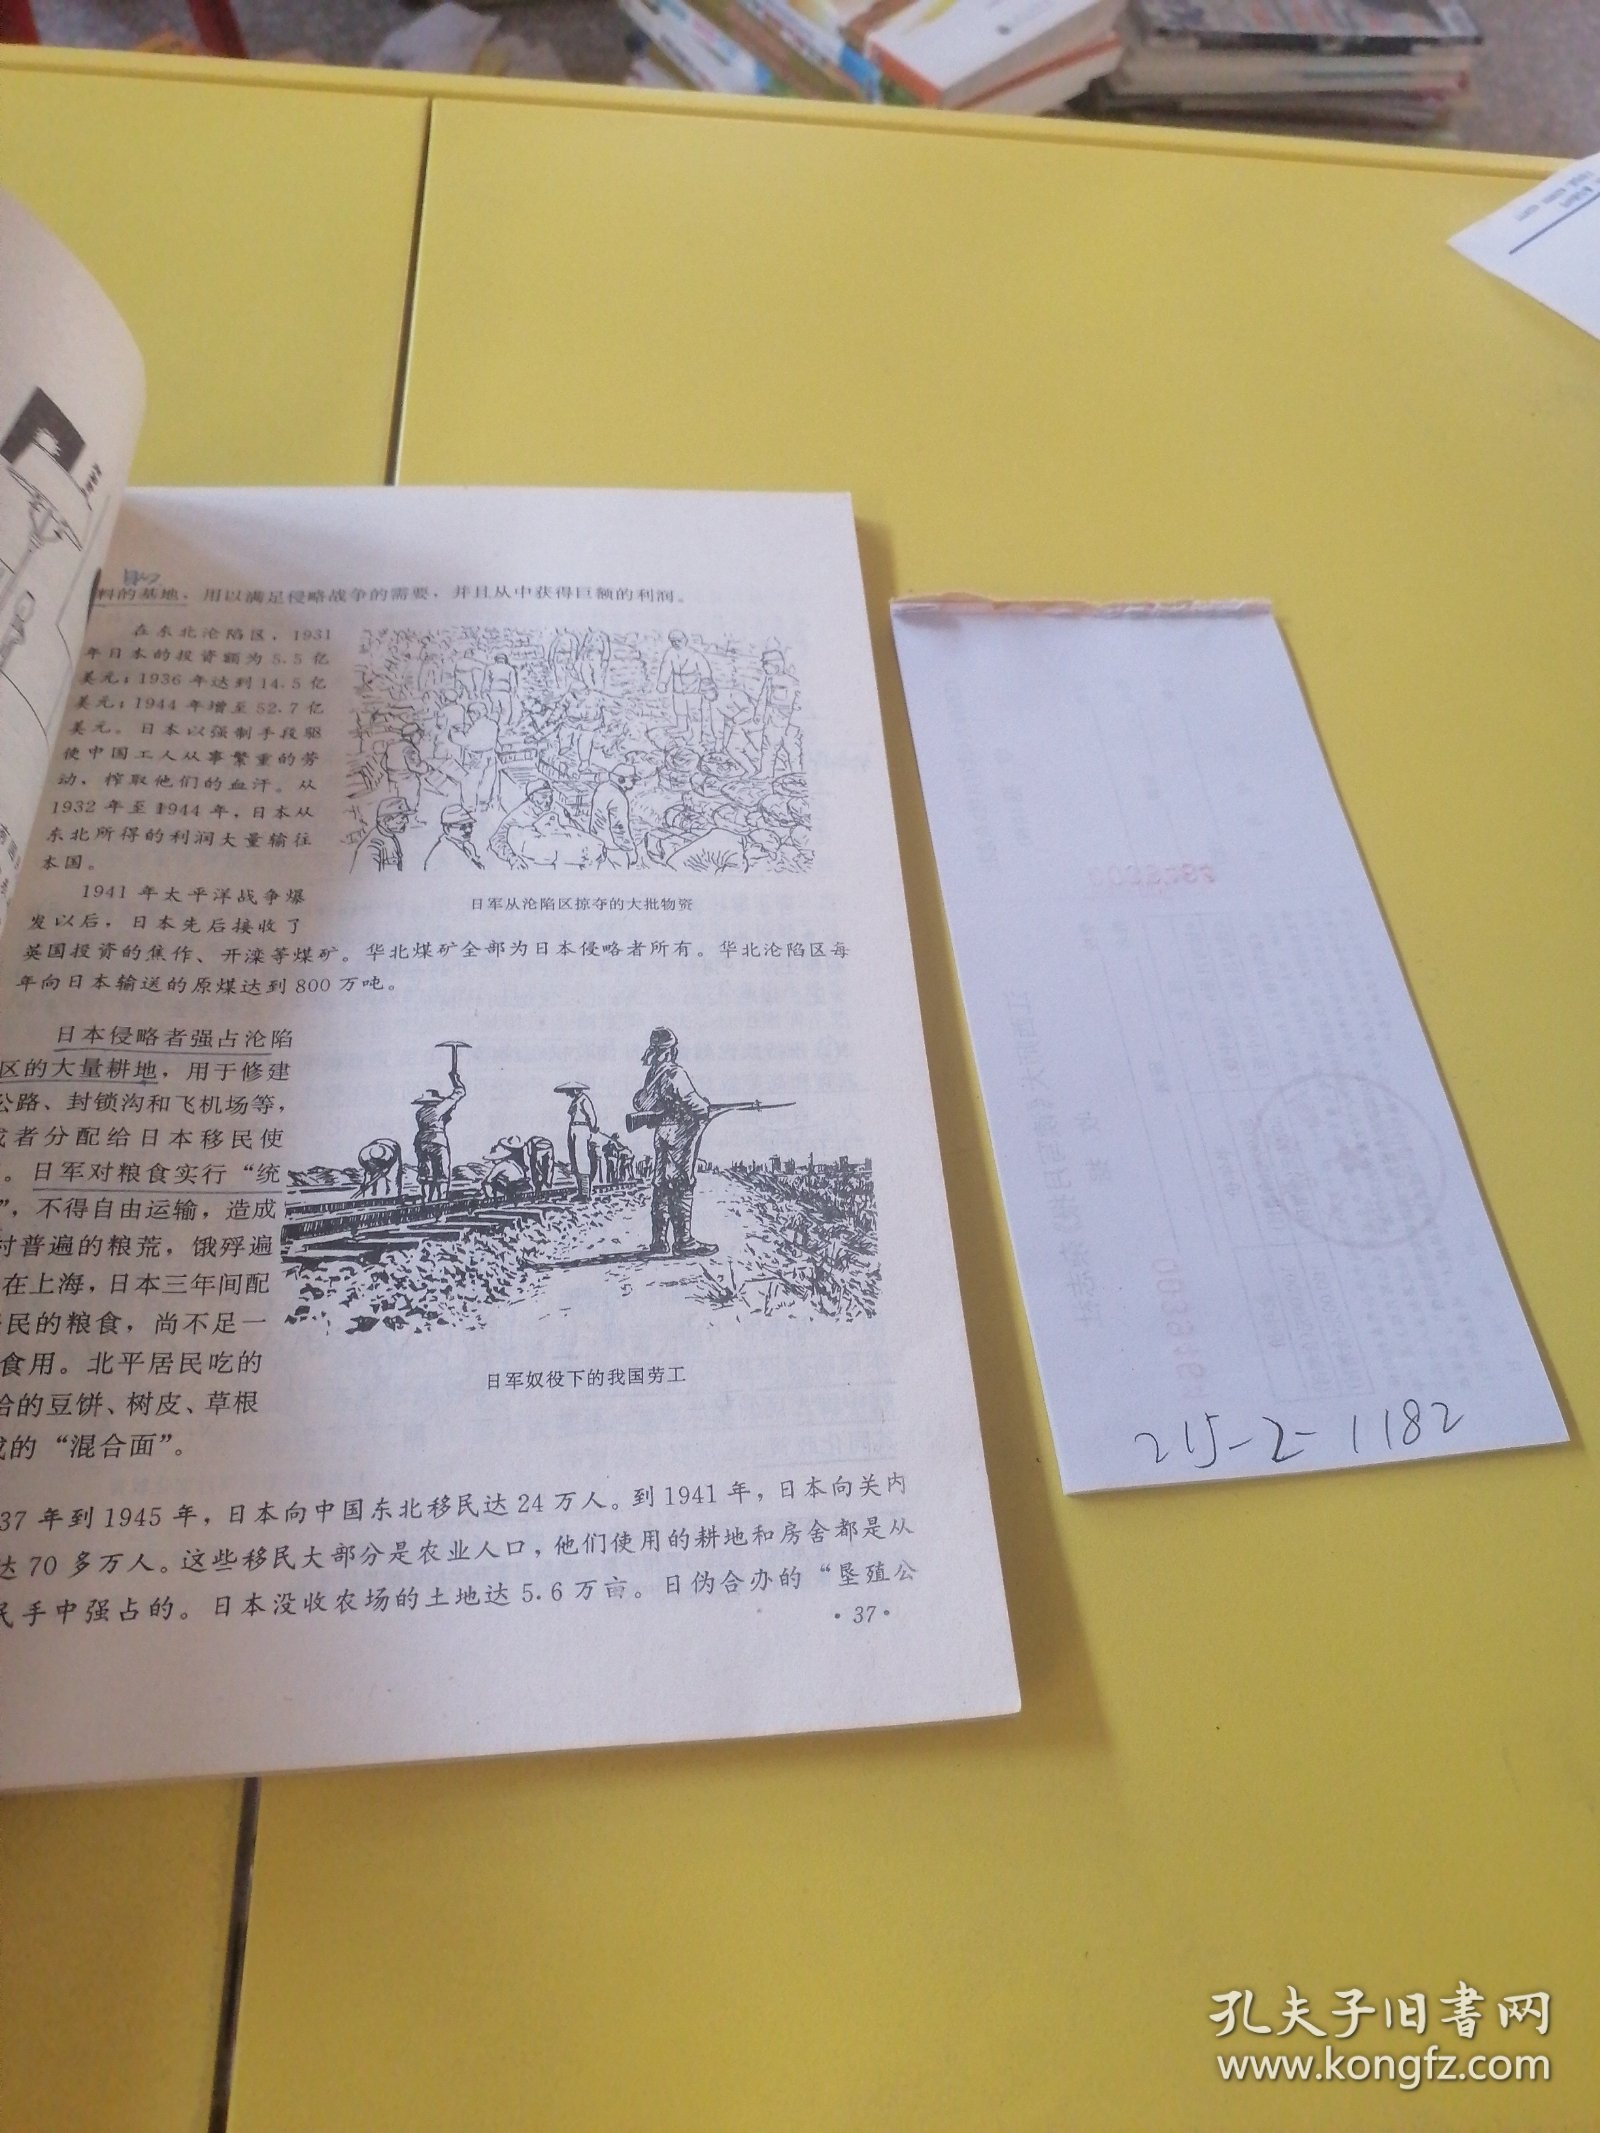 料的基地，用以满足侵略战争的需要，并且从中获得巨额的利润。
在东北沦陷区，1931
年日本的投资额为5.5亿
美元；1936年达到14.5亿
美元；1944年增至52.7亿
美元。日本以强制手段驱
使中国工人从事繁重的劳
动，榨取他们的血汗。从
1932年至1944年，日本从
东北所得的利润大量输往
本国。
1941年太平洋战争爆
发以后，日本先后接收了
英国投资的焦作、开滦等煤矿。华北煤矿全部为日本侵略者所有。华北沦陷区每
年向日本输送的原煤达到800万吨。
日军从沦陷区掠夺的大批物资
日本侵略者强占沦陷
区的大量耕地，用于修建
公路、封锁沟和飞机场等，
或者分配给日本移民使
。日军对粮食实行“统
”，不得自由运输，造成
村普遍的粮荒，饿殍遍
在上海，日本三年间配
民的粮食，尚不足一
食用。北平居民吃的
的豆饼、树皮、草根
成的“混合面”。
日军奴役下的我国劳工
37年到1945年，日本向中国东北移民达24万人。到1941年，日本向关内
达70多万人。这些移民大部分是农业人口，他们使用的耕地和房舍都是从
民手中强占的。日本没收农场的土地达5.6万亩。日伪合办的“垦殖公
·37·
215-2-1182
孔夫子旧书网
www.kongfz.com